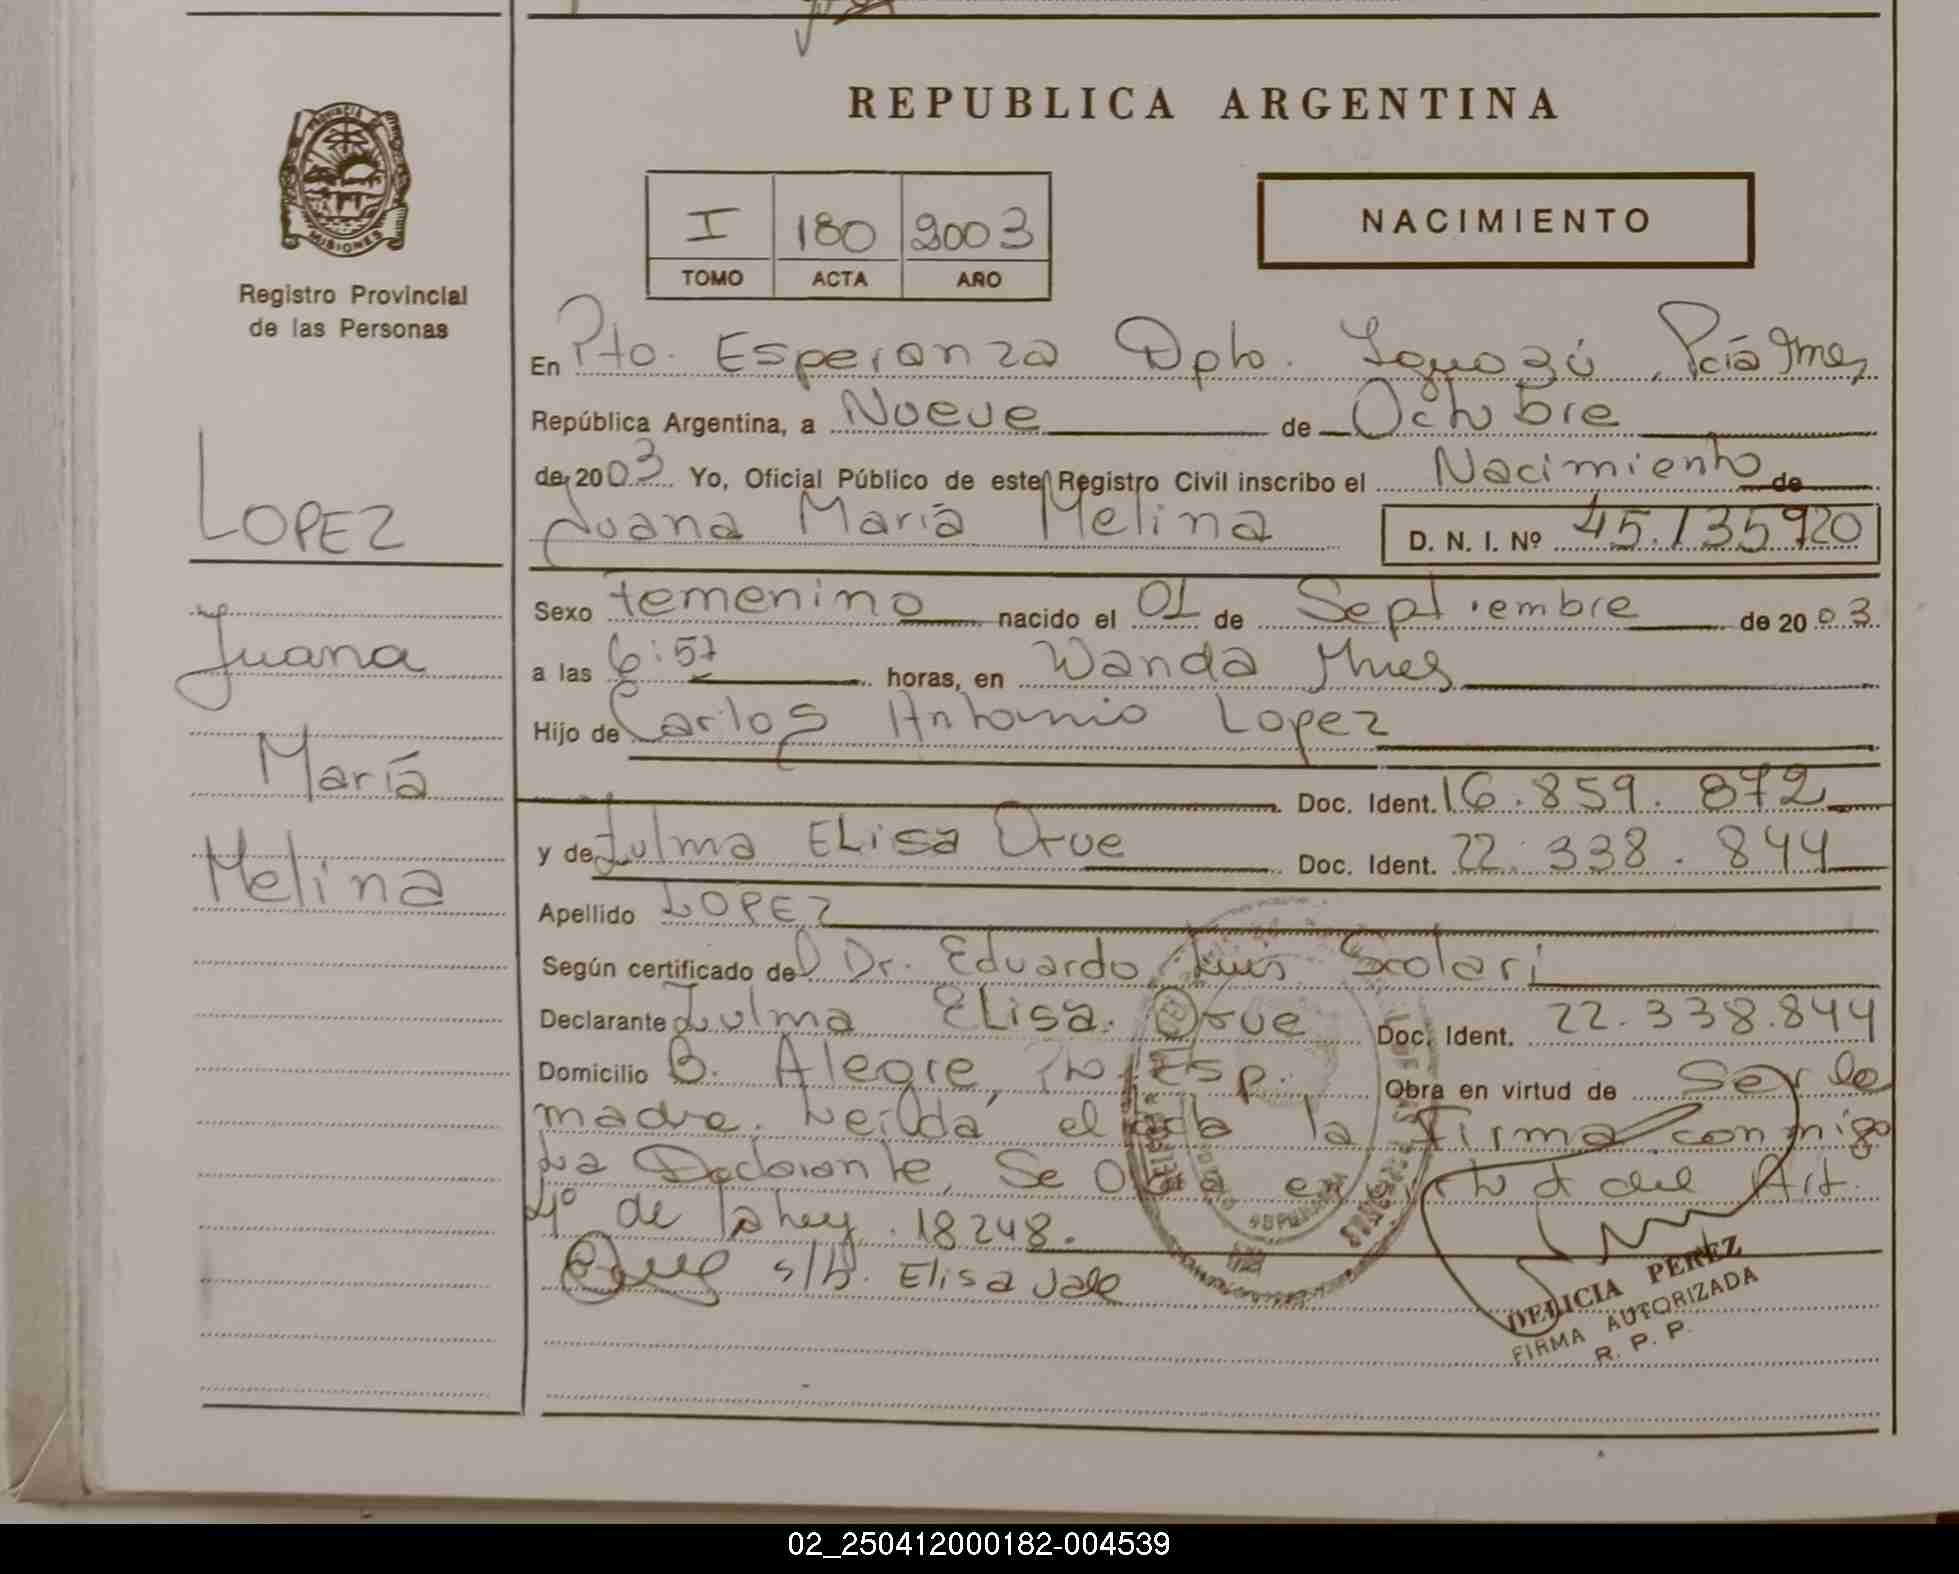 REPUBLICA ARGENTINA
PROVINCIA DE
MISIONES
Registro Provincial
de las Personas
I 180 2003
TOMO ACTA AÑO
NACIMIENTO
En Pto. Esperanza Dpto. Iguazú, Pcia Mnes,
República Argentina, a Nueve de Octubre
de 2003 Yo, Oficial Público de este Registro Civil inscribo el Nacimiento de
Juana María Melina D. N. I. Nº 45.135920
LOPEZ
Juana
María
Melina
Sexo femenino nacido el 01 de Septiembre de 2003
a las 6:57 horas, en Wanda Mnes
Hijo de Carlos Antonio Lopez
Doc. Ident. 16.859.872
y de Zulma ELisa Orue Doc. Ident. 22.338.844
Apellido LOPEZ
Según certificado de Dr. Eduardo Luis Scolari
Declarante Zulma ELisa Orue Doc. Ident. 22.338.844
Domicilio B. Alegre, Pto Esp. Obra en virtud de Ser la
madre. Leída el acta la Firma conmigo
La Declarante, Se Obra en virtud del Art.
4º de la ley 18248.
s/b. Elisa vale
DELICIA PEREZ
FIRMA AUTORIZADA
R. P. P.
02_250412000182-004539